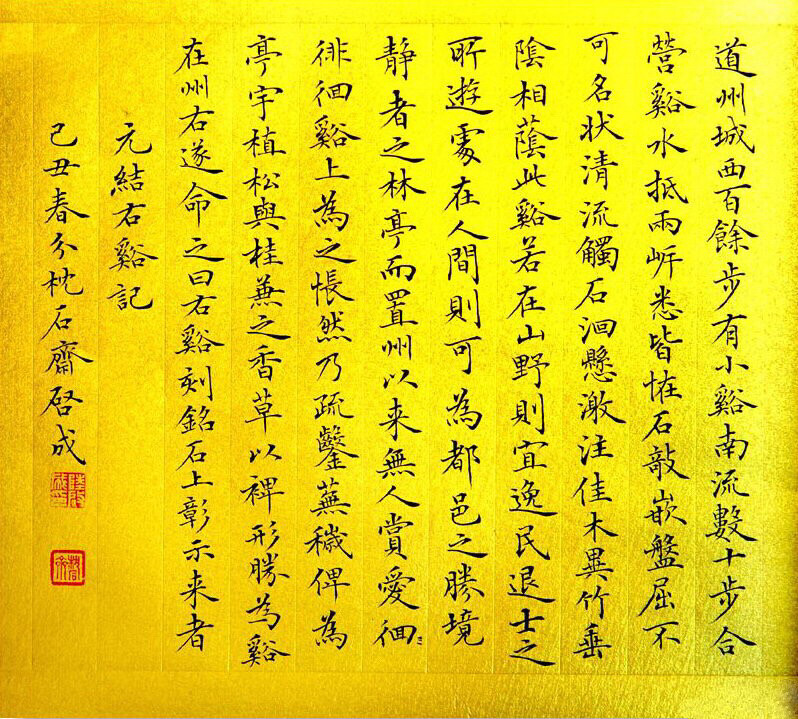 道州城西百餘步有小谿南流數十步合
營谿水抵兩岸悉皆恠石敲嵌盤屈不
可名状清流觸石洄懸激注佳木異竹垂
陰相蔭此谿若在山野則宜逸民退士之
所遊處在人間則可為都邑之勝境
静者之林亭而置州以来無人賞愛徊
徘徊谿上為之悵然乃疏鑿蕪穢俾為
亭宇植松與桂兼之香草以裨形勝為谿
在州右遂命之曰右谿刻銘石上彰示来者
元結右谿記
己丑春分枕石齋啓成